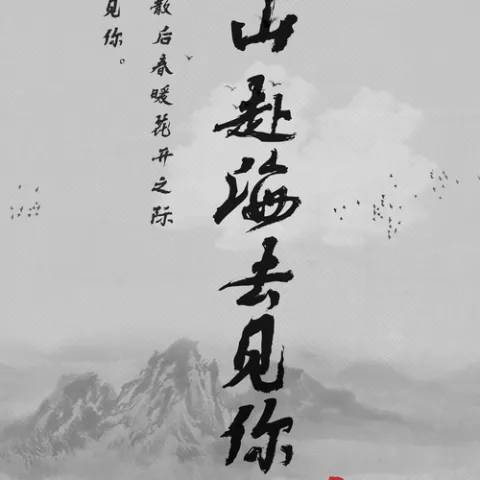 山赴海去见你
散后春暖花开之际
见你。